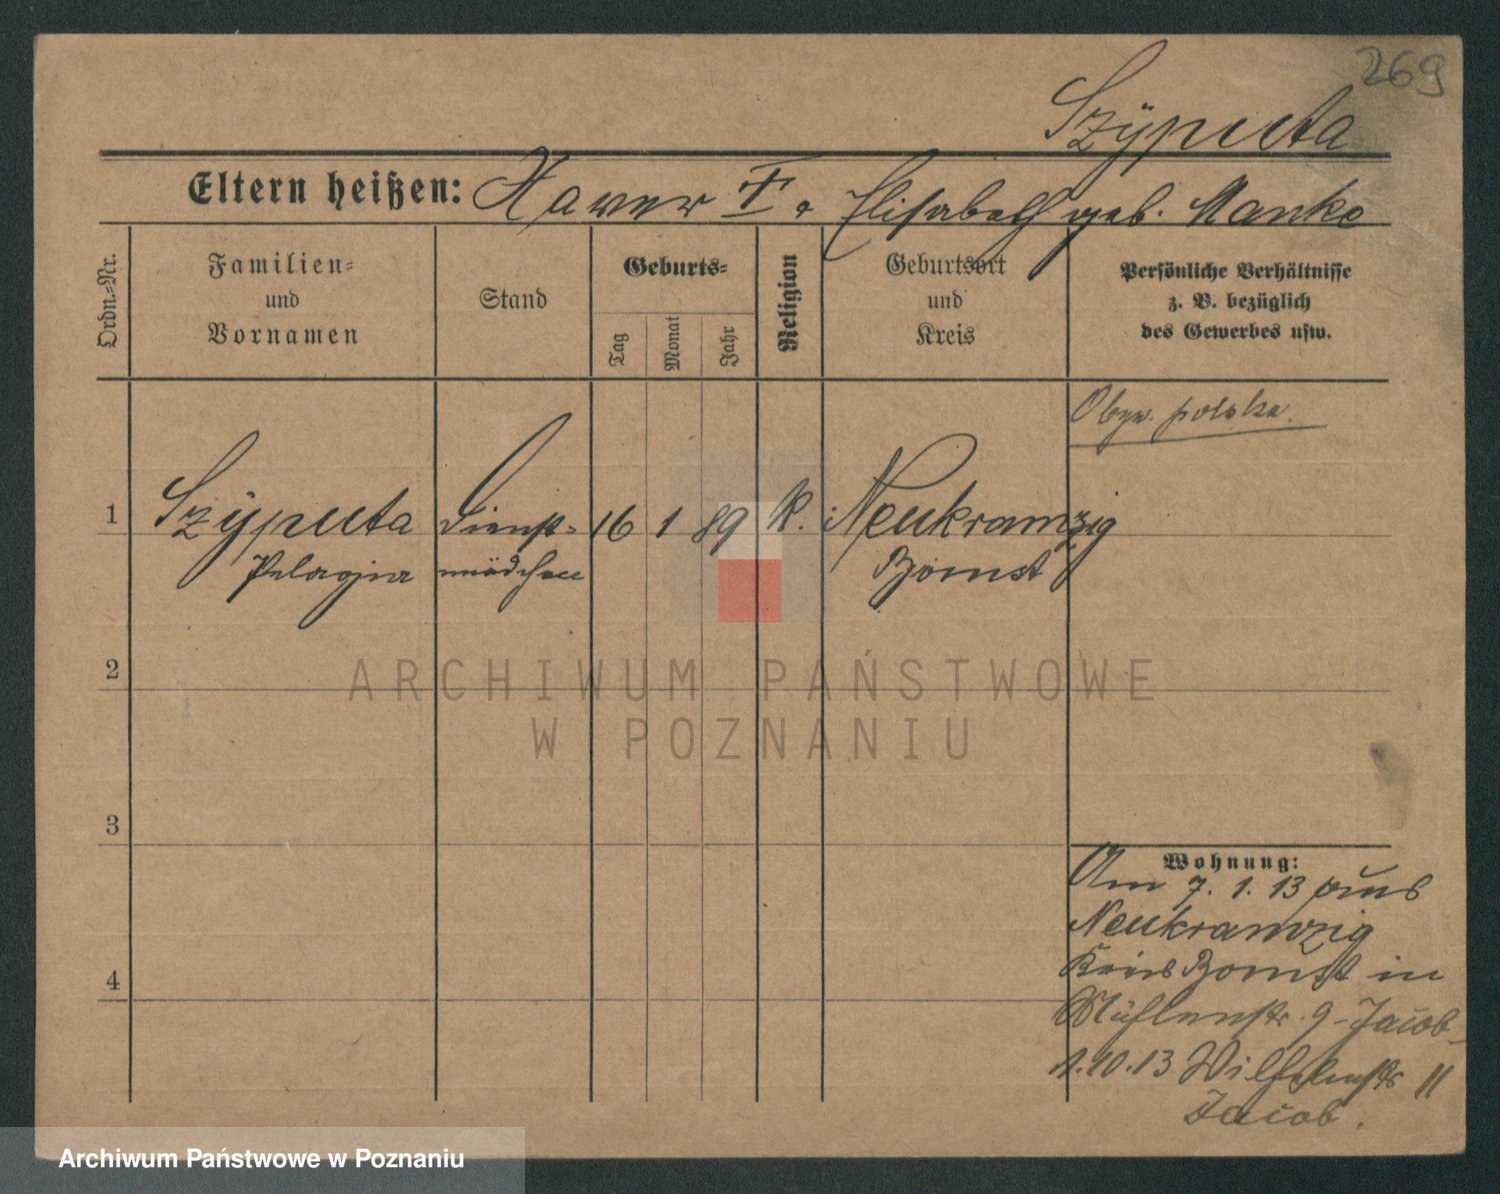 269
Szÿputa
Eltern heißen: Xaver † u. Elisabeth geb. Manke
Ordn.-Nr.
Familien-
und
Vornamen
Stand
Geburts-
Tag
Monat
Jahr
Religion
Geburtsort
und
Kreis
Persönliche Verhältnisse
z. B. bezüglich
des Gewerbes usw.
Obyw. polska.
1 Szÿputa Dienst- 16 1 89 k. Neukramzig
Pelagia mädchen Bomst
2
3
4
Wohnung:
Am 7. 1. 13 aus
Neukramzig
Kreis Bomst in
Mühlenstr. 9 - Jacob -
1.10.13 Wilhelmstr 11
Jacob.
ARCHIWUM PAŃSTWOWE
W POZNANIU
Archiwum Państwowe w Poznaniu